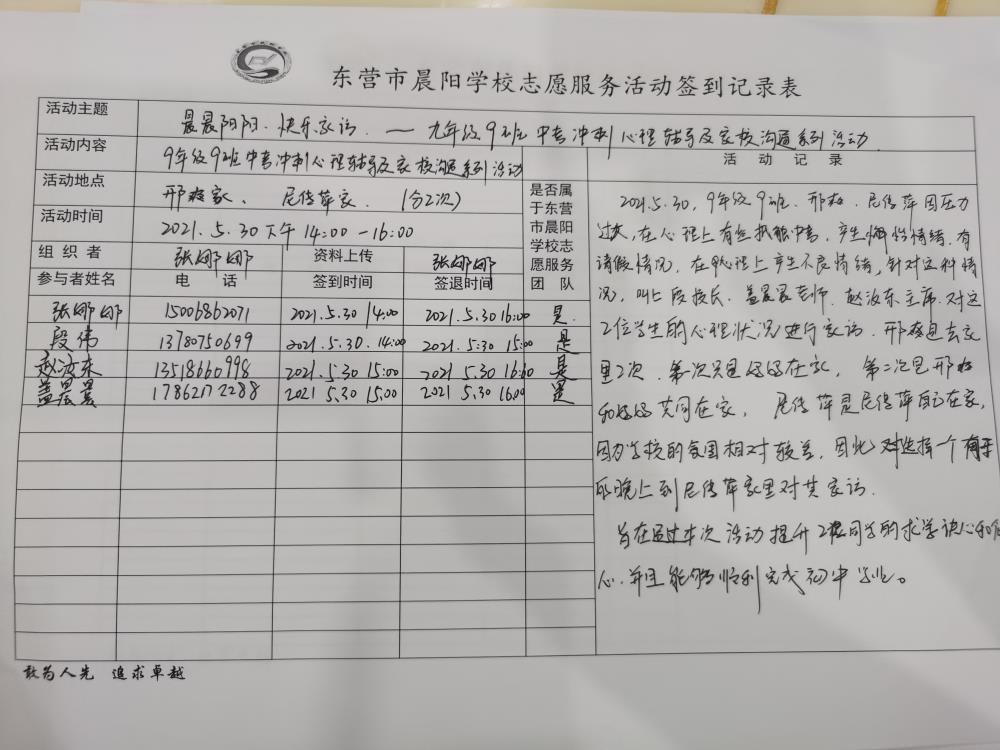 东营市晨阳学校志愿服务活动签到记录表
活动主题 晨晨阳阳·快乐家访 — 九年级9班中考冲刺心理辅导及家校沟通系列活动
活动内容 9年级9班中考冲刺心理辅导及家校沟通系列活动
活动地点 家、尼传萍家. (分2次)
活动时间 2021.5.30下午14:00-16:00
是否属于东营市晨阳学校志愿服务团队
组织者 张娜娜 资料上传 张娜娜
参与者姓名 电话 签到时间 签退时间
张娜娜 15006862071 2021.5.30 14:00 2021.5.30 16:00 是
段伟 13780750699 2021.5.30.14:00 2021.5.30 15:00 是
赵波东 13518660998 2021.5.30 15:00 2021.5.30 16:00 是
盖晨晨 17862172288 2021 5.30 15:00 2021 5.30 16:00 是
活动记录
2021.5.30, 9年级9班、邢、尼传萍因压力
过大,在心理上有些抵触中考,产生情绪,有
请假情况,在心理上产生不良情绪,针对这种情
况,叫上段校长、盖晨晨老师、赵波东主席.对这
2位学生的心理状况进行家访.邢过去家
里2次.第一次只是妈妈在家,第二次是邢
和妈妈共同在家, 尼传萍是尼传萍自己在家,
因为学校的氛围相对较差,因此选择一个
晚上到尼传萍家里对其家访.
旨在通过本次活动提升2位同学的求学决心和
心.并且能够顺利完成初中学业。
敢为人先 追求卓越